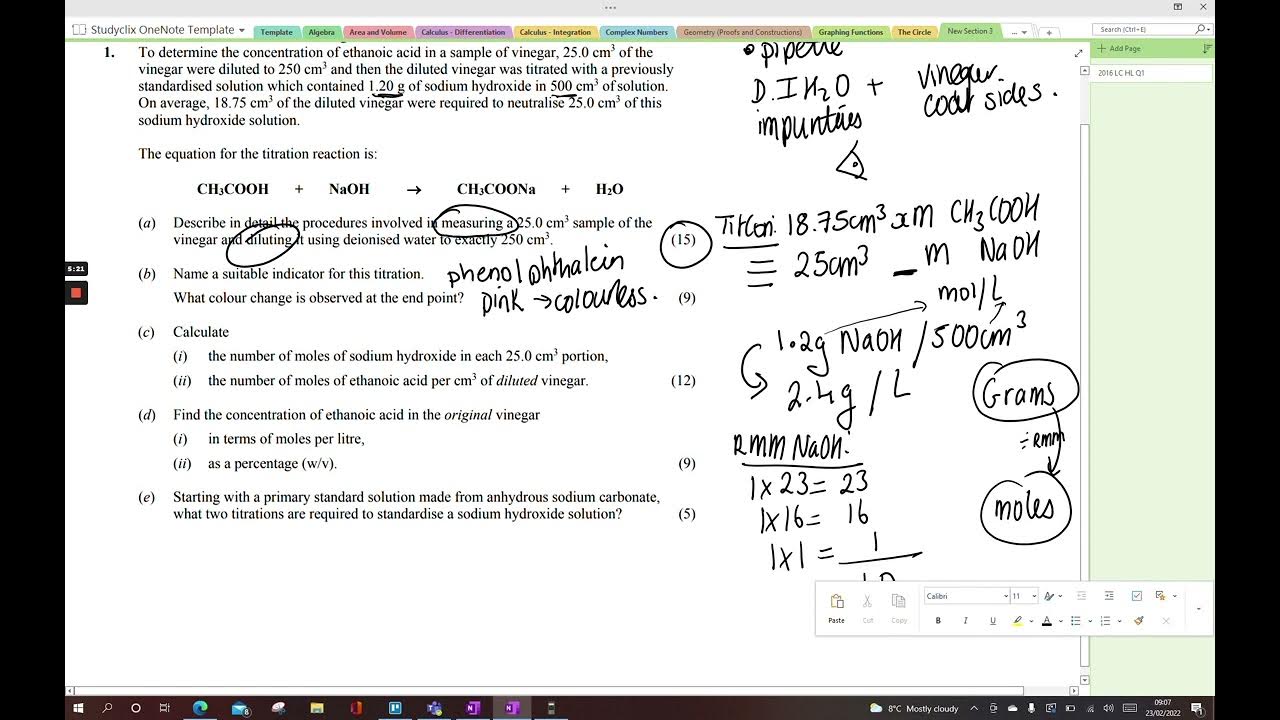 Studyclix OneNote Template
Template
Algebra
Area and Volume
Calculus - Differentiation
Calculus - Integration
Complex Numbers
Geometry (Proofs and Constructions)
Graphing Functions
The Circle
New Section 3
Search (Ctrl+E)
Add Page
2016 LC HL Q1
1. To determine the concentration of ethanoic acid in a sample of vinegar, 25.0 cm³ of the
vinegar were diluted to 250 cm³ and then the diluted vinegar was titrated with a previously
standardised solution which contained 1.20 g of sodium hydroxide in 500 cm³ of solution.
On average, 18.75 cm³ of the diluted vinegar were required to neutralise 25.0 cm³ of this
sodium hydroxide solution.
The equation for the titration reaction is:
CH₃COOH + NaOH → CH₃COONa + H₂O
(a) Describe in detail the procedures involved in measuring a 25.0 cm³ sample of the
vinegar and diluting it using deionised water to exactly 250 cm³. (15)
(b) Name a suitable indicator for this titration.
What colour change is observed at the end point? (9)
phenolphthalein
pink → colourless.
(c) Calculate
(i) the number of moles of sodium hydroxide in each 25.0 cm³ portion,
(ii) the number of moles of ethanoic acid per cm³ of diluted vinegar. (12)
(d) Find the concentration of ethanoic acid in the original vinegar
(i) in terms of moles per litre,
(ii) as a percentage (w/v). (9)
(e) Starting with a primary standard solution made from anhydrous sodium carbonate,
what two titrations are required to standardise a sodium hydroxide solution? (5)
• pipette
D.I H₂O + vinegar
impurities coat sides.
18.75cm³ xM CH₃COOH
≡ 25cm³ _ M NaOH
mol/L
1.2g NaOH / 500cm³
2.4g / L
Grams
÷ Rmm
moles
RMM NaOH:
1x23 = 23
1x16 = 16
1x1 = 1
Calibri
11
Paste
Cut
Copy
B I U
5:21
8°C Mostly cloudy
09:07
23/02/2022